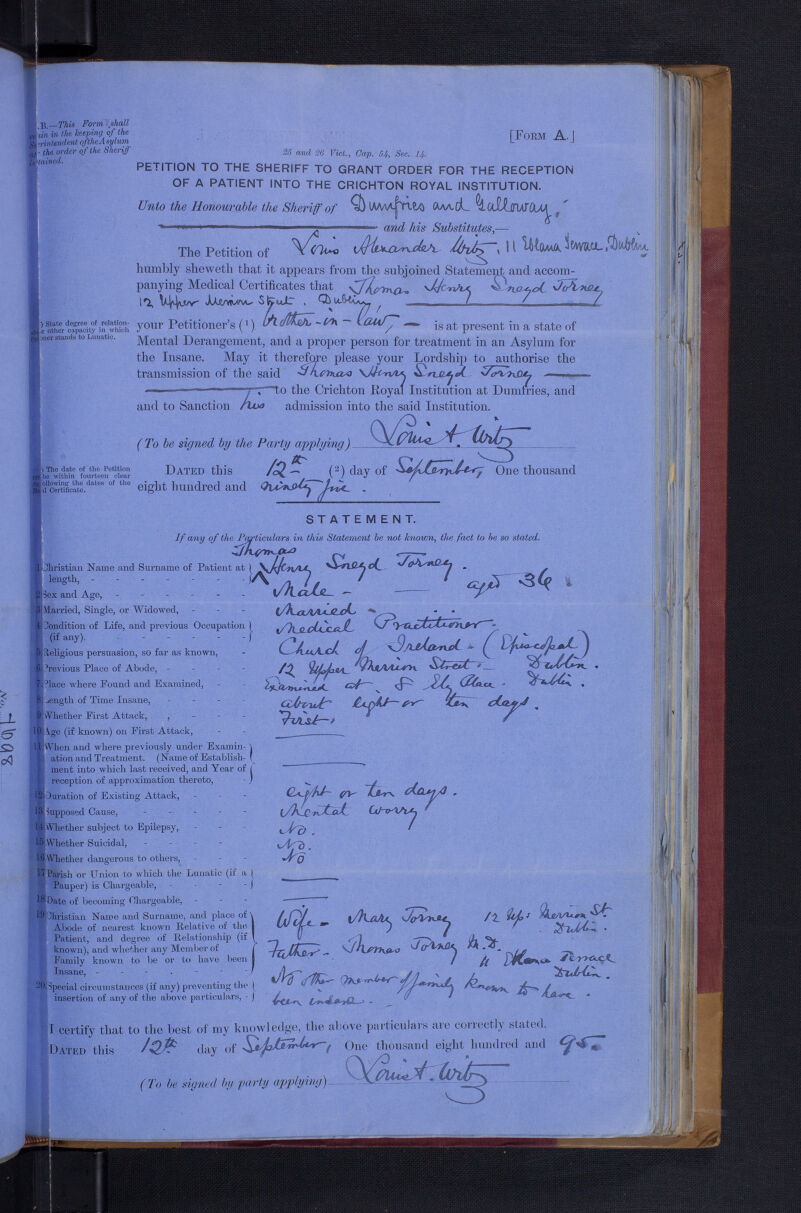 .B.—This Form shall
in in the keeping of the
Superintendent of the Asylum
the order of the Sheriff
tained.
[FORM A.]
25 and 26 Vict., Cap. 54, Sec. 14.
PETITION TO THE SHERIFF TO GRANT ORDER FOR THE RECEPTION
OF A PATIENT INTO THE CRICHTON ROYAL INSTITUTION.
Unto the Honourable the Sheriff of Dumfries and Galloway,
and his Substitutes,—
The Petition of Louis Alexander, 11 Eblana Terrace, Dublin
humbly sheweth that it appears from the subjoined Statement and accom-
panying Medical Certificates that Thomas Henry Sneyd Torney
12 Upper Merrion Street, Dublin,
) State degree of relation-
or other capacity in which
ner stands to Lunatic.
your Petitioner's (1) brother-in-law, — is at present in a state of
Mental Derangement, and a proper person for treatment in an Asylum for
the Insane. May it therefore please your Lordship to authorise the
transmission of the said Thomas Henry Sneyd Torney
, to the Crichton Royal Institution at Dumfries, and
and to Sanction his admission into the said Institution.
(To be signed by the Party applying) Louis A.
) The date of the Petition
be within fourteen clear
following the dates of the
d Certificate.
DATED this 12th (2) day of September, One thousand
eight hundred and ninety five.
STATEMENT.
If any of the Particulars in this Statement be not known, the fact to be so stated.
Thomas
1 Christian Name and Surname of Patient at
length, - Henry Sneyd Torney.
2 Sex and Age, - Male - aged 36
3 Married, Single, or Widowed, - Married
4 Condition of Life, and previous Occupation
(if any). - Medical Practitioner
5 Religious persuasion, so far as known, - Church of Ireland - (Episcopal)
6 Previous Place of Abode, - 12 Upper Merrion Street - Dublin.
7 Place where Found and Examined, Examined at 8 Ely Place. Dublin.
8 Length of Time Insane, - about eight or ten days.
9 Whether First Attack, - First
10 Age (if known) on First Attack, -
11 When and where previously under Examin-
ation and Treatment. (Name of Establish-
ment into which last received, and Year of
reception of approximation thereto, -
12 Duration of Existing Attack, - eight or ten days.
13 Supposed Cause, - Mental worry
14 Whether subject to Epilepsy, - No.
15 Whether Suicidal, - No.
16 Whether dangerous to others, - No
17 Parish or Union to which the Lunatic (if a
Pauper) is Chargeable, -
18 Date of becoming Chargeable, -
19 Christian Name and Surname, and place of
Abode of nearest known Relative of the
Patient, and degree of Relationship (if
known), and whether any Member of
Family known to be or to have been
Insane, -
Wife - Mary Torney 12 Upr Merrion St.
Dublin.
Father - Thomas Torney M.D.
11 Eblana Terrace
Dublin.
No other member of family known to have
been insane.
20 Special circumstances (if any) preventing the
insertion of any of the above particulars, -
I certify that to the best of my knowledge, the above particulars are correctly stated.
DATED this 12th day of September, One thousand eight hundred and 95.
(To be signed by party applying) Louis A.